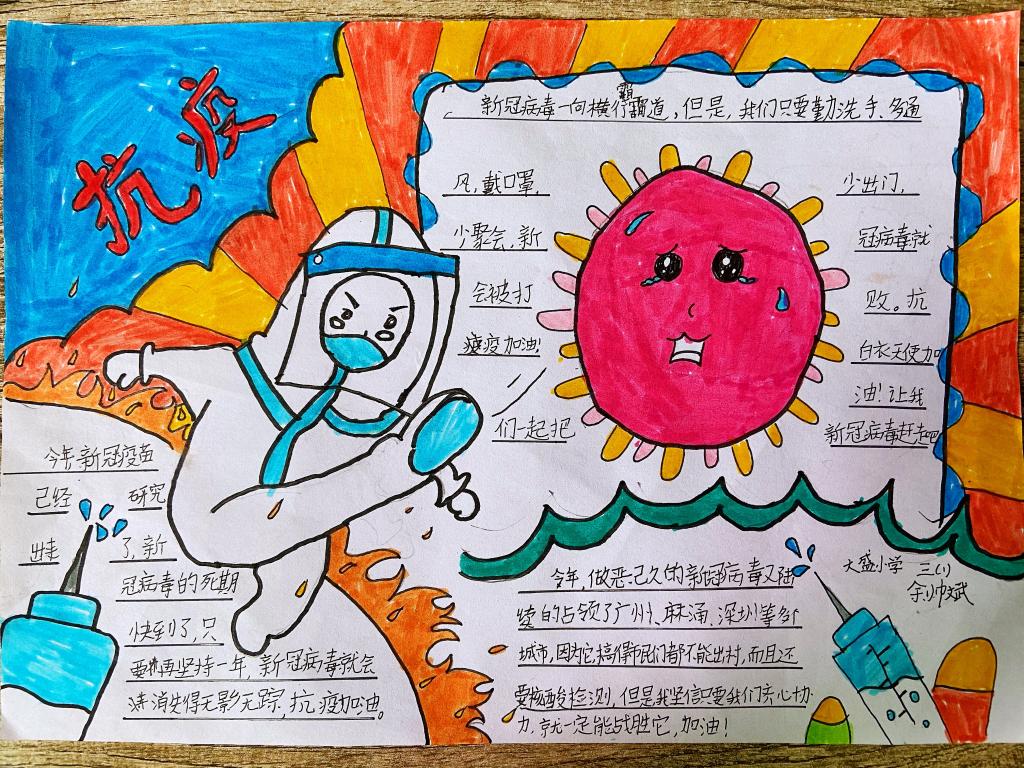 抗疫
新冠病毒一向横行霸道,但是,我们只要勤洗手、多通
风,戴口罩, 少出门,
少聚会,新 冠病毒就
会被打 败。抗
疫加油! 白衣天使加
油!让我
们一起把 新冠病毒赶走吧
今年新冠疫苗
已经 研究
出走 了,新
冠病毒的死期
快到了,只
要再坚持一年,新冠病毒就会
消失得无影无踪,抗疫加油。
今年,做恶已久的新冠病毒又陆
续的占领了广州、麻涌、深圳等多个
城市,因为它,搞得市民们都不能出村,而且还
要核酸检测,但是我坚信只要我们齐心协
力,就一定能战胜它,加油!
大盛小学 三(1)